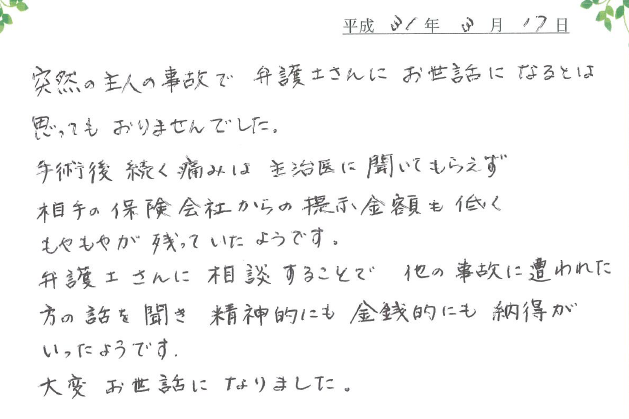 平成 31 年 3 月 17 日
突然の主人の事故で 弁護士さんに お世話に なるとは
思っても おりませんでした。
手術後 続く 痛みは 主治医に 聞いてもらえず
相手の 保険会社からの 提示金額も 低く
もやもやが 残っていたようです。
弁護士さんに 相談することで 他の事故に遭われた
方の話を聞き 精神的にも 金銭的にも 納得が
いったようです.
大変 お世話に なりました。